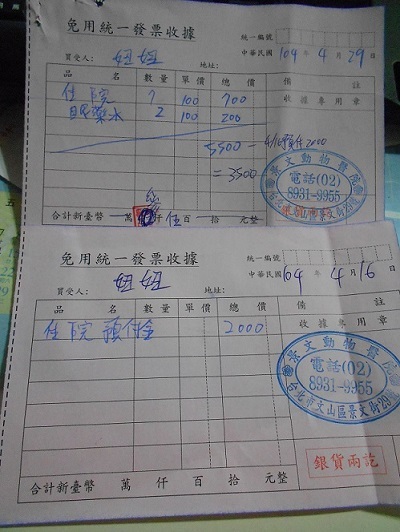 免用統一發票收據
統一編號
買受人: 妞妞
地址:
中華民國 104 年 4 月 29 日
品 名 數量 單價 總價 備 註
住院 7 100 700 收據專用章
眼藥水 2 100 200
5500 - 預付2000
= 3500
景文動物醫院
電話(02)
8931-9955
合計新臺幣 萬 仟 伍 百 拾 元整
免用統一發票收據
統一編號
買受人: 妞妞
地址:
中華民國 104 年 4 月 16 日
品 名 數量 單價 總價 備 註
住院預付金 2000 收據專用章
景文動物醫院
電話(02)
8931-9955
台北市文山區景文街29號
銀貨兩訖
合計新臺幣 萬 仟 百 拾 元整